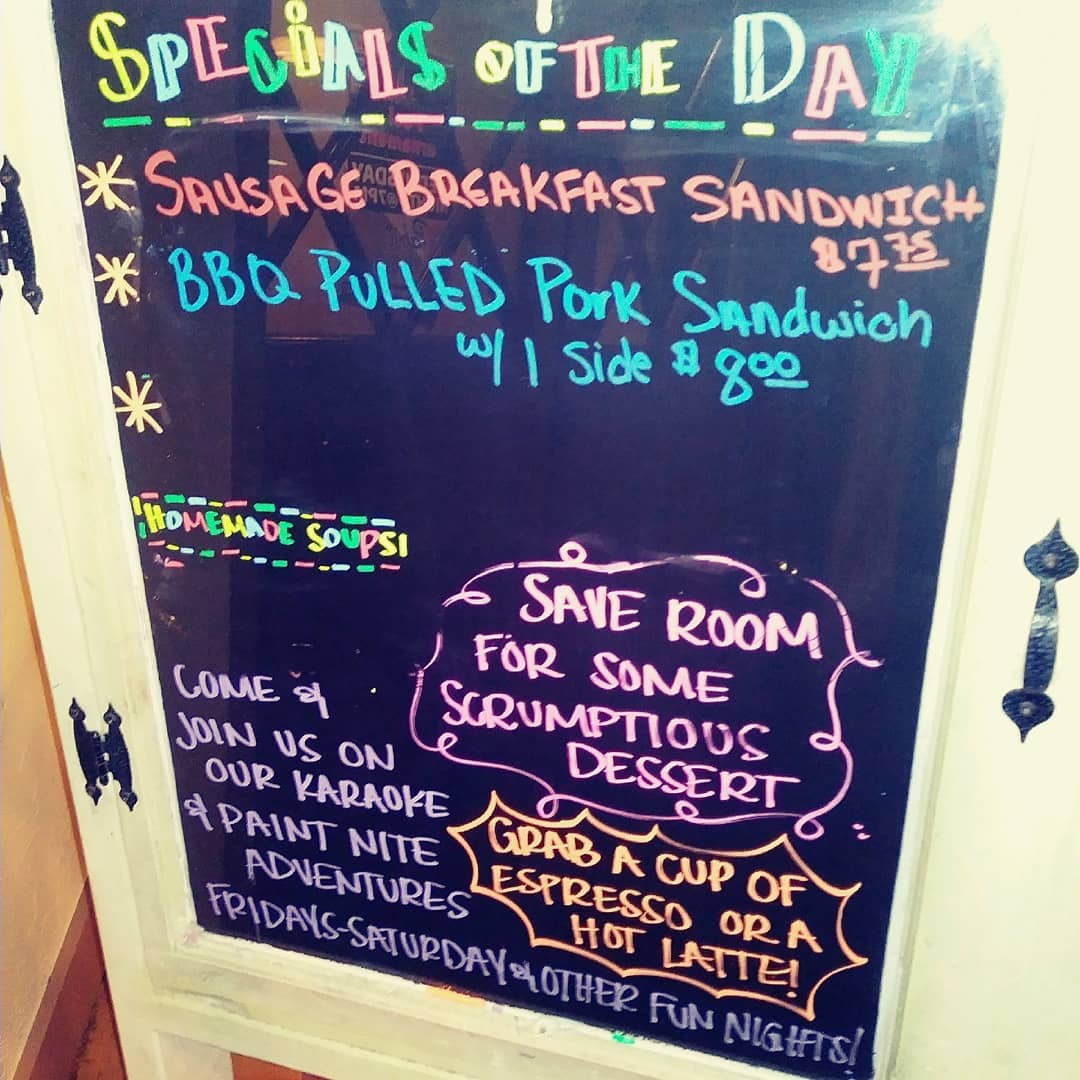 SPECIALS OF THE DAY
* SAUSAGE BREAKFAST SANDWICH
$7.75
* BBQ PULLED Pork Sandwich
w/ 1 Side $8.00
*
HOMEMADE SOUPS!
SAVE ROOM
FOR SOME
SCRUMPTIOUS
DESSERT
COME &
JOIN US ON
OUR KARAOKE
& PAINT NITE
ADVENTURES
FRIDAYS-SATURDAY & OTHER FUN NIGHTS!
GRAB A CUP OF
ESPRESSO OR A
HOT LATTE!